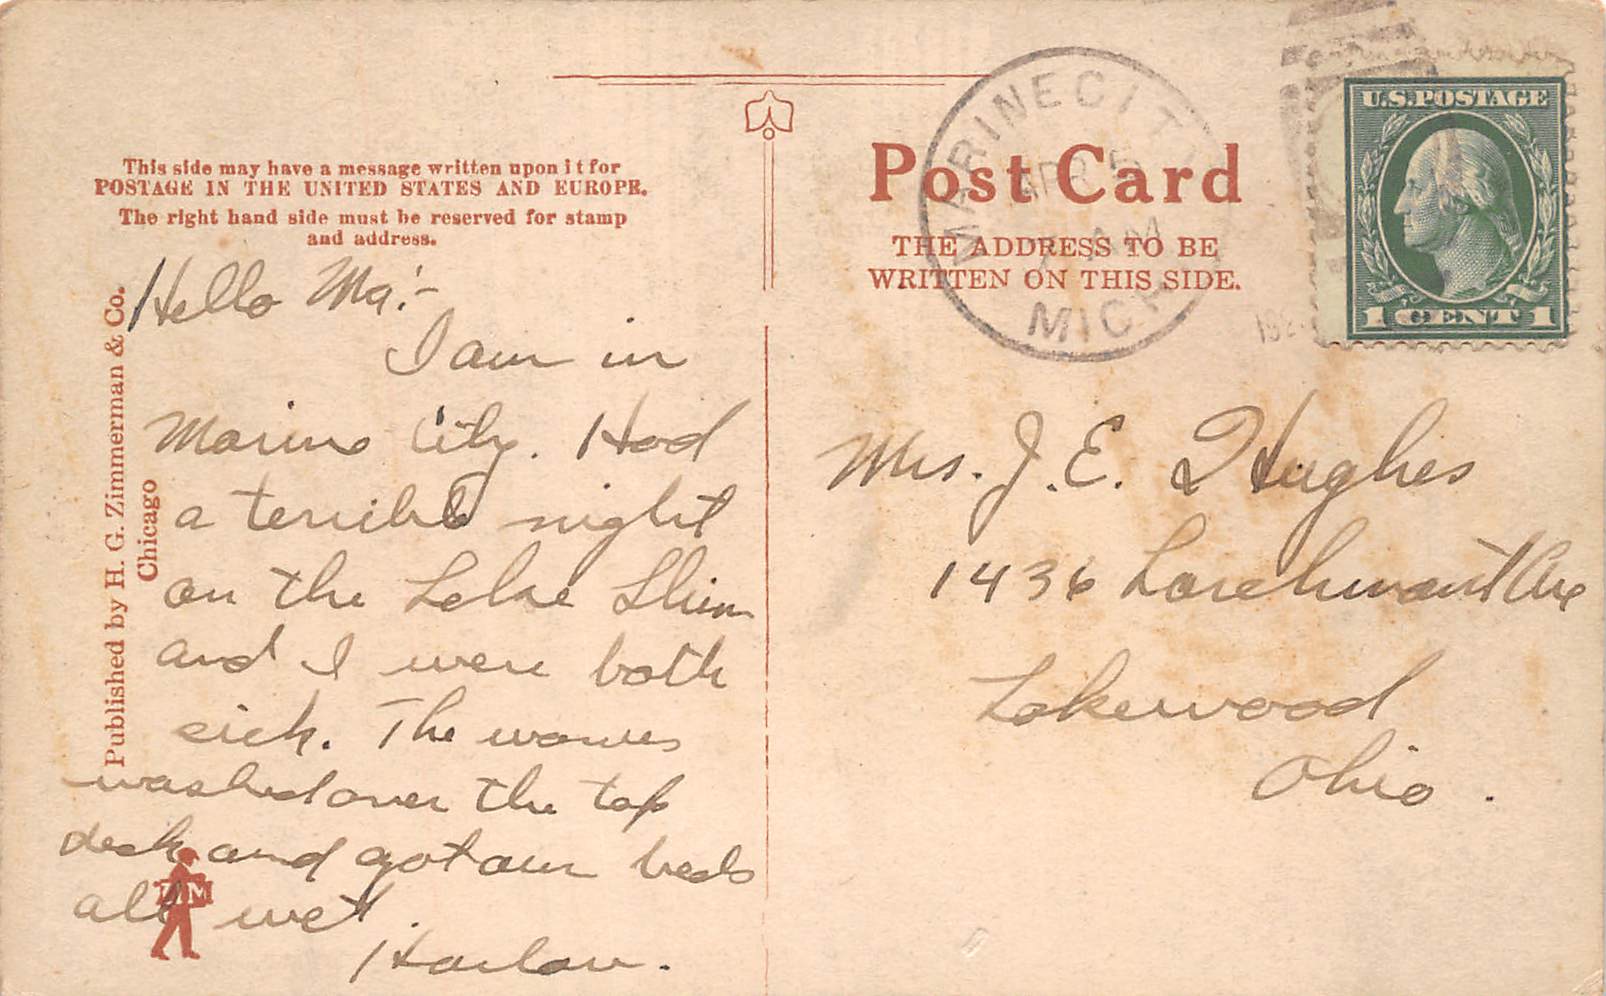 This side may have a message written upon it for
POSTAGE IN THE UNITED STATES AND EUROPE.
The right hand side must be reserved for stamp
and address.
Published by H. G. Zimmerman & Co.
Chicago
Hello Ma:-
I am in
Marine City. Had
a terrible night
on the Lake Slim
and I were both
sick. The waves
washed over the top
deck and got our beds
all wet.
Harlow.
Post Card
THE ADDRESS TO BE
WRITTEN ON THIS SIDE.
MARINE CITY
APR 5
AM
MICH
U.S. POSTAGE
1 CENT 1
Mrs. J. E. Hughes
1436 Larchmont Ave
Lakewood
Ohio.